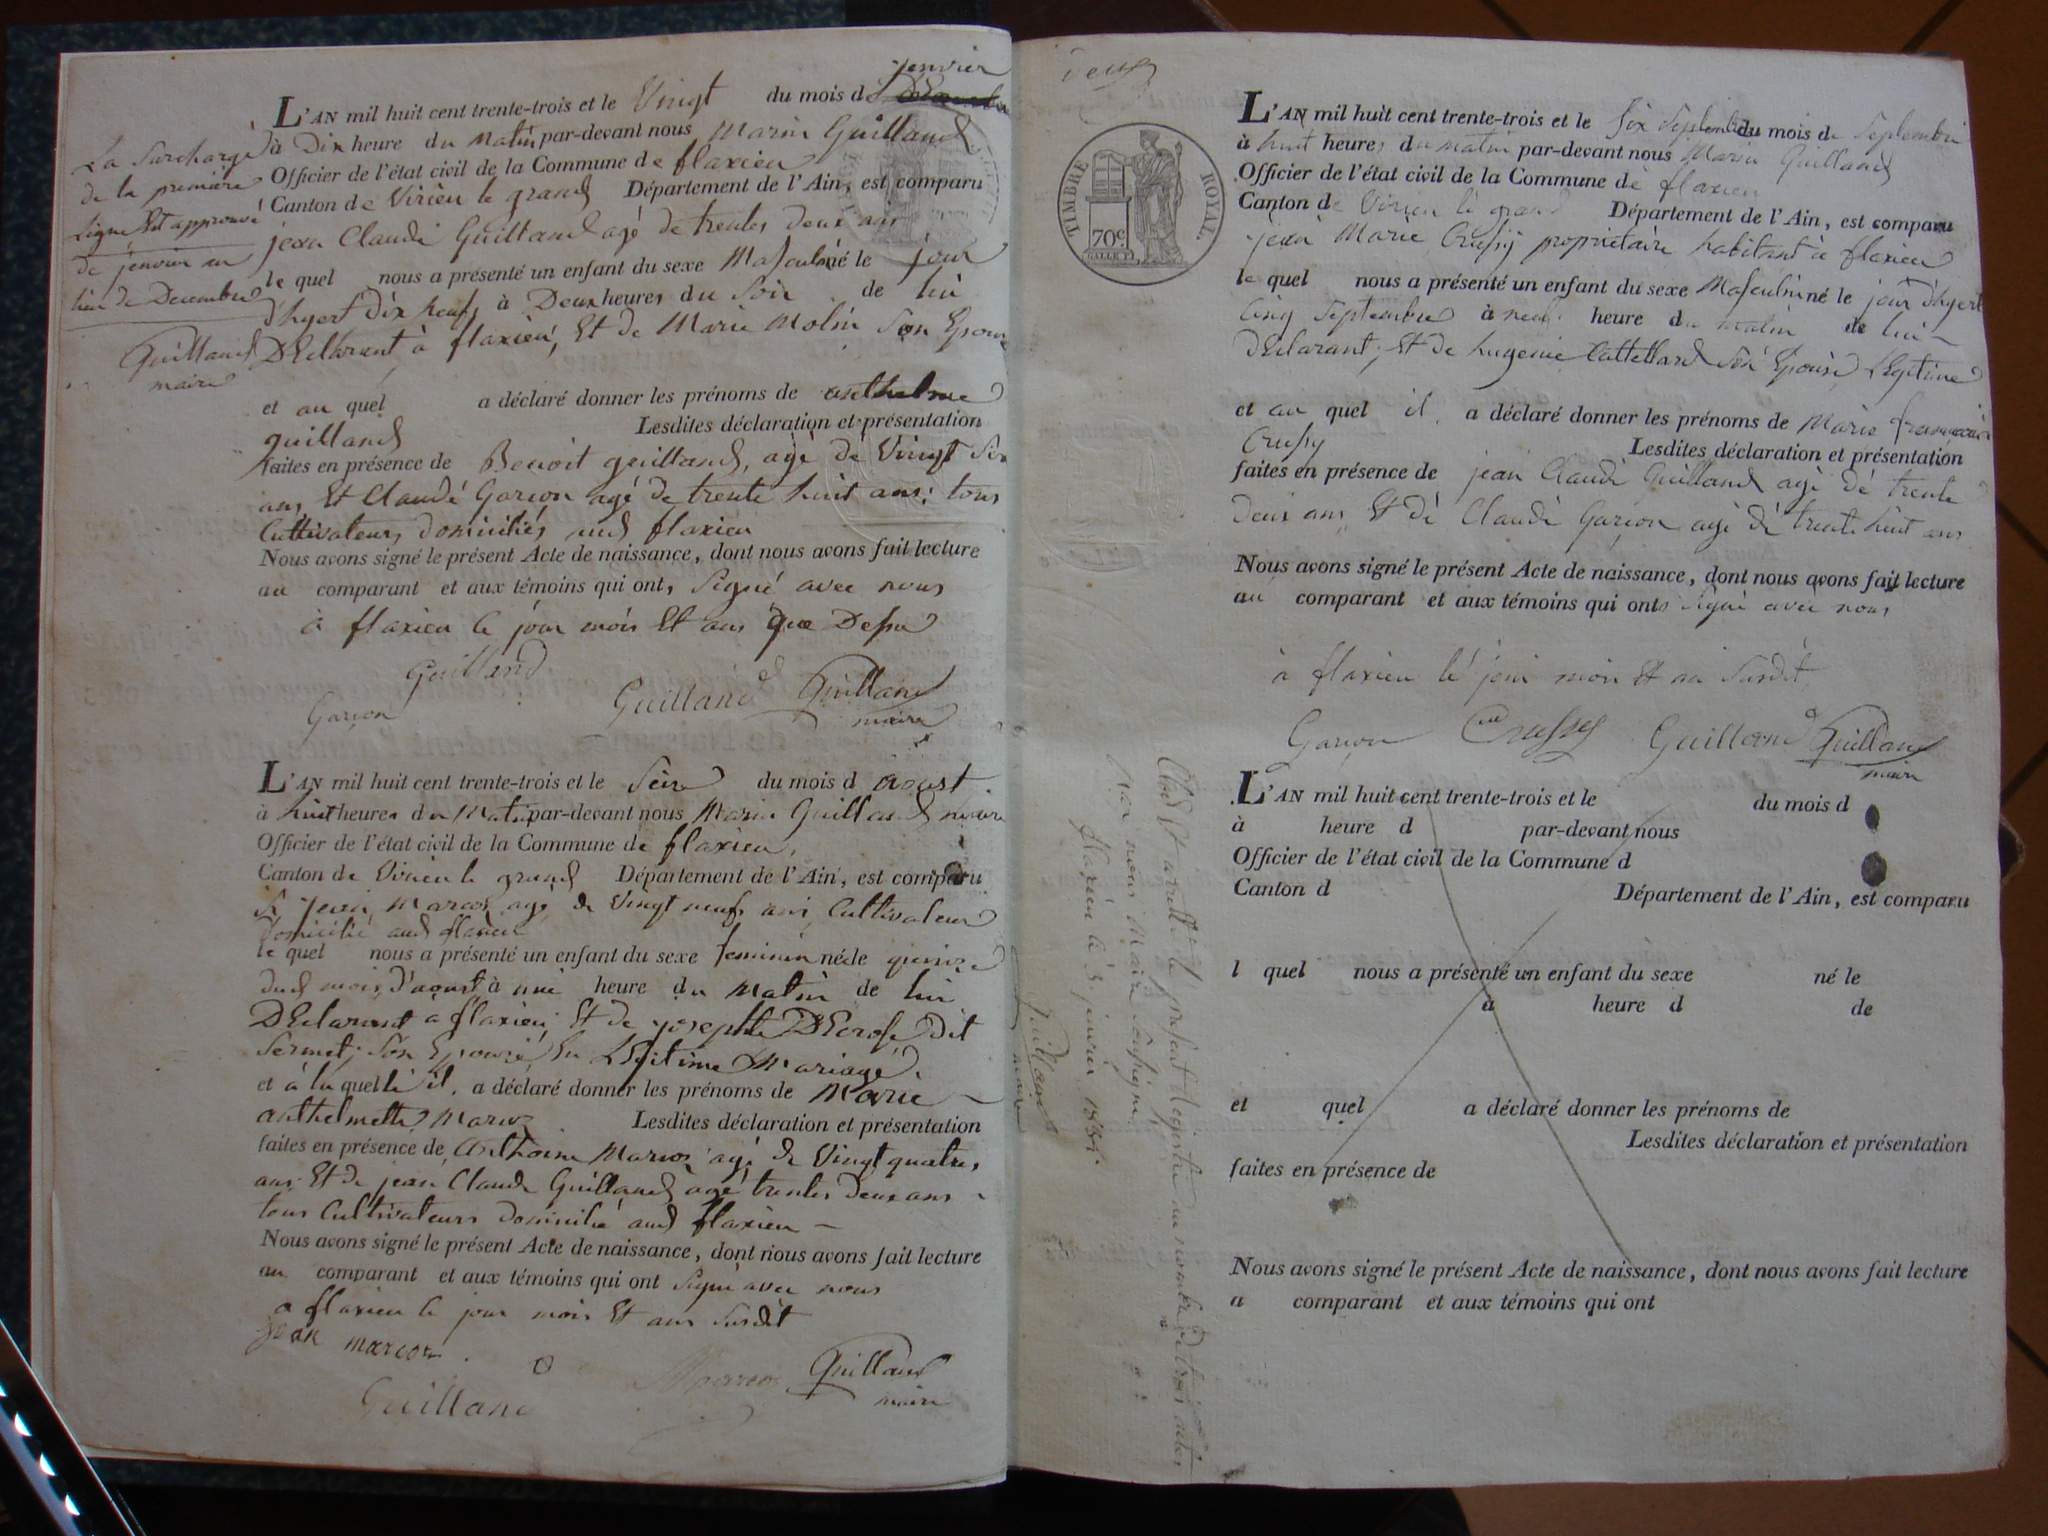 janvier
L'AN mil huit cent trente-trois et le Vingt du mois de
à Dix heure du Matin par-devant nous Marin Guilland
Officier de l'état civil de la Commune de flaxieu
Canton de Virieu le grand Département de l'Ain, est comparu
jean Claude Guilland agé de trentes deux ans
le quel nous a présenté un enfant du sexe Masculin né le jour
d'hyert dix neuf, à Deux heures du Soir de lui
DEclarant, à flaxieu, Et de Marie Molin Son Epouse
et au quel a déclaré donner les prénoms de anthelme
guilland Lesdites déclaration et présentation
faites en présence de Benoit guilland, agé de Vingt Six
ans, Et Claude Garçon agé de trente huit ans; tous
Cultivateurs domiciliés aud flaxieu
Nous avons signé le présent Acte de naissance, dont nous avons fait lecture
au comparant et aux témoins qui ont, Signé avec nous
à flaxieu le jour mois Et ans que Dessu
Guilland
Garçon Guilland Guilland
maire
La Surcharge
de la première
ligne Est approuvé
de janvier au
lieu de Decembre
Guilland
maire
L'AN mil huit cent trente-trois et le Seize du mois d aoust
à huit heures du Matin par-devant nous Marin Guilland maire
Officier de l'état civil de la Commune de flaxieu,
Canton de Virieu le grand Département de l'Ain, est comparu
jean Maroz agé de Vingt neuf ans Cultivateur
Domicilié aud flaxieu
le quel nous a présenté un enfant du sexe feminin né le quinze
dud mois d'aoust à une heure du Matin de lui
DEclarant a flaxieu, Et de josephte DEcrose Dit
Sermet, Son Epouse En LEgitime Mariage.
et à la quelle il, a déclaré donner les prénoms de Marie
anthelmette Maroz Lesdites déclaration et présentation
faites en présence de Anthoine Maroz agé de Vingt quatre,
ans Et de jean Claude Guilland agé trentes deux ans
tous Cultivateurs domicilié aud flaxieu
Nous avons signé le présent Acte de naissance, dont nous avons fait lecture
au comparant et aux témoins qui ont Signé avec nous
a flaxieu le jour mois Et ans Susdit
jean maroz
Guilland
Guilland
maire
TIMBRE ROYAL.
70c
L'AN mil huit cent trente-trois et le Six Septembre du mois de Septembre
à huit heures du matin par-devant nous Marin Guilland
Officier de l'état civil de la Commune de flaxieu
Canton de Virieu le grand Département de l'Ain, est comparu
jean Marie Crussy propriétaire habitant à flaxieu
le quel nous a présenté un enfant du sexe Masculin né le jour d'hyert
Cinq Septembre à neuf heure du matin de lui
dEclarant, Et de hugenie Son Epouse LEgitime
et au quel il, a déclaré donner les prénoms de Marie
Crussy Lesdites déclaration et présentation
faites en présence de jean Claude Guilland agé de trente
deux ans Et de Claude Garçon agé de trente huit ans
Nous avons signé le présent Acte de naissance, dont nous avons fait lecture
au comparant et aux témoins qui ont signé avec nous
à flaxieu le jour mois Et an Susdit
Garçon Crussy Guilland Guilland
maire
L'AN mil huit cent trente-trois et le du mois d
à heure d par-devant nous
Officier de l'état civil de la Commune d
Canton d Département de l'Ain, est comparu
l quel nous a présenté un enfant du sexe né le
à heure d de
et quel a déclaré donner les prénoms de
Lesdites déclaration et présentation
faites en présence de
Nous avons signé le présent Acte de naissance, dont nous avons fait lecture
a comparant et aux témoins qui ont
Clos Et arrêté le présent Registre au nombre de trois actes
Par nous Maire Soussigné
flaxieu le janvier
Guilland
maire